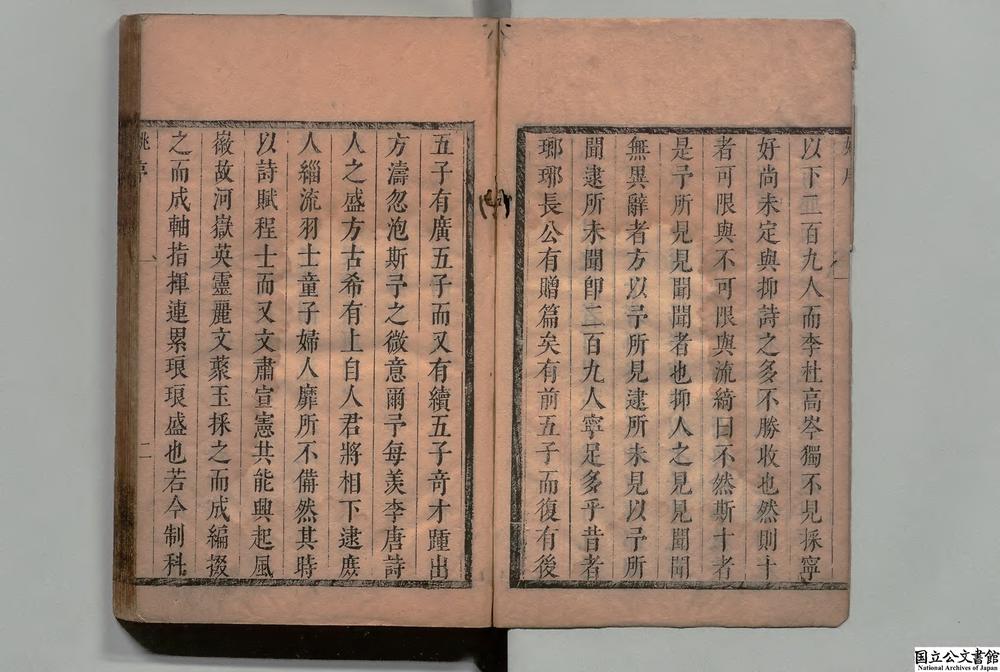 以下二百九人而李杜高岑獨不見採寧
好尚未定與抑詩之多不勝收也然則十
者可限與不可限與流綺曰不然斯十者
是予所見見聞聞者也抑人之見見聞聞
無異辭者方以予所見逮所未見以予所
聞逮所未聞即二百九人寧足多乎昔者
瑯琊長公有贈篇矣有前五子而復有後
五子有廣五子而又有續五子竒才踵出
方濤忽泡斯予之微意爾予每羨李唐詩
人之盛方古希有上自人君將相下逮庶
人緇流羽士童子婦人靡所不備然其時
以詩賦程士而又文肅宣憲其能興起風
徽故河嶽英靈麗文蘂玉採之而成編掇
之而成軸指揮連累琅琅盛也若今制科
姚序
二
国立公文書館
National Archives of Japan